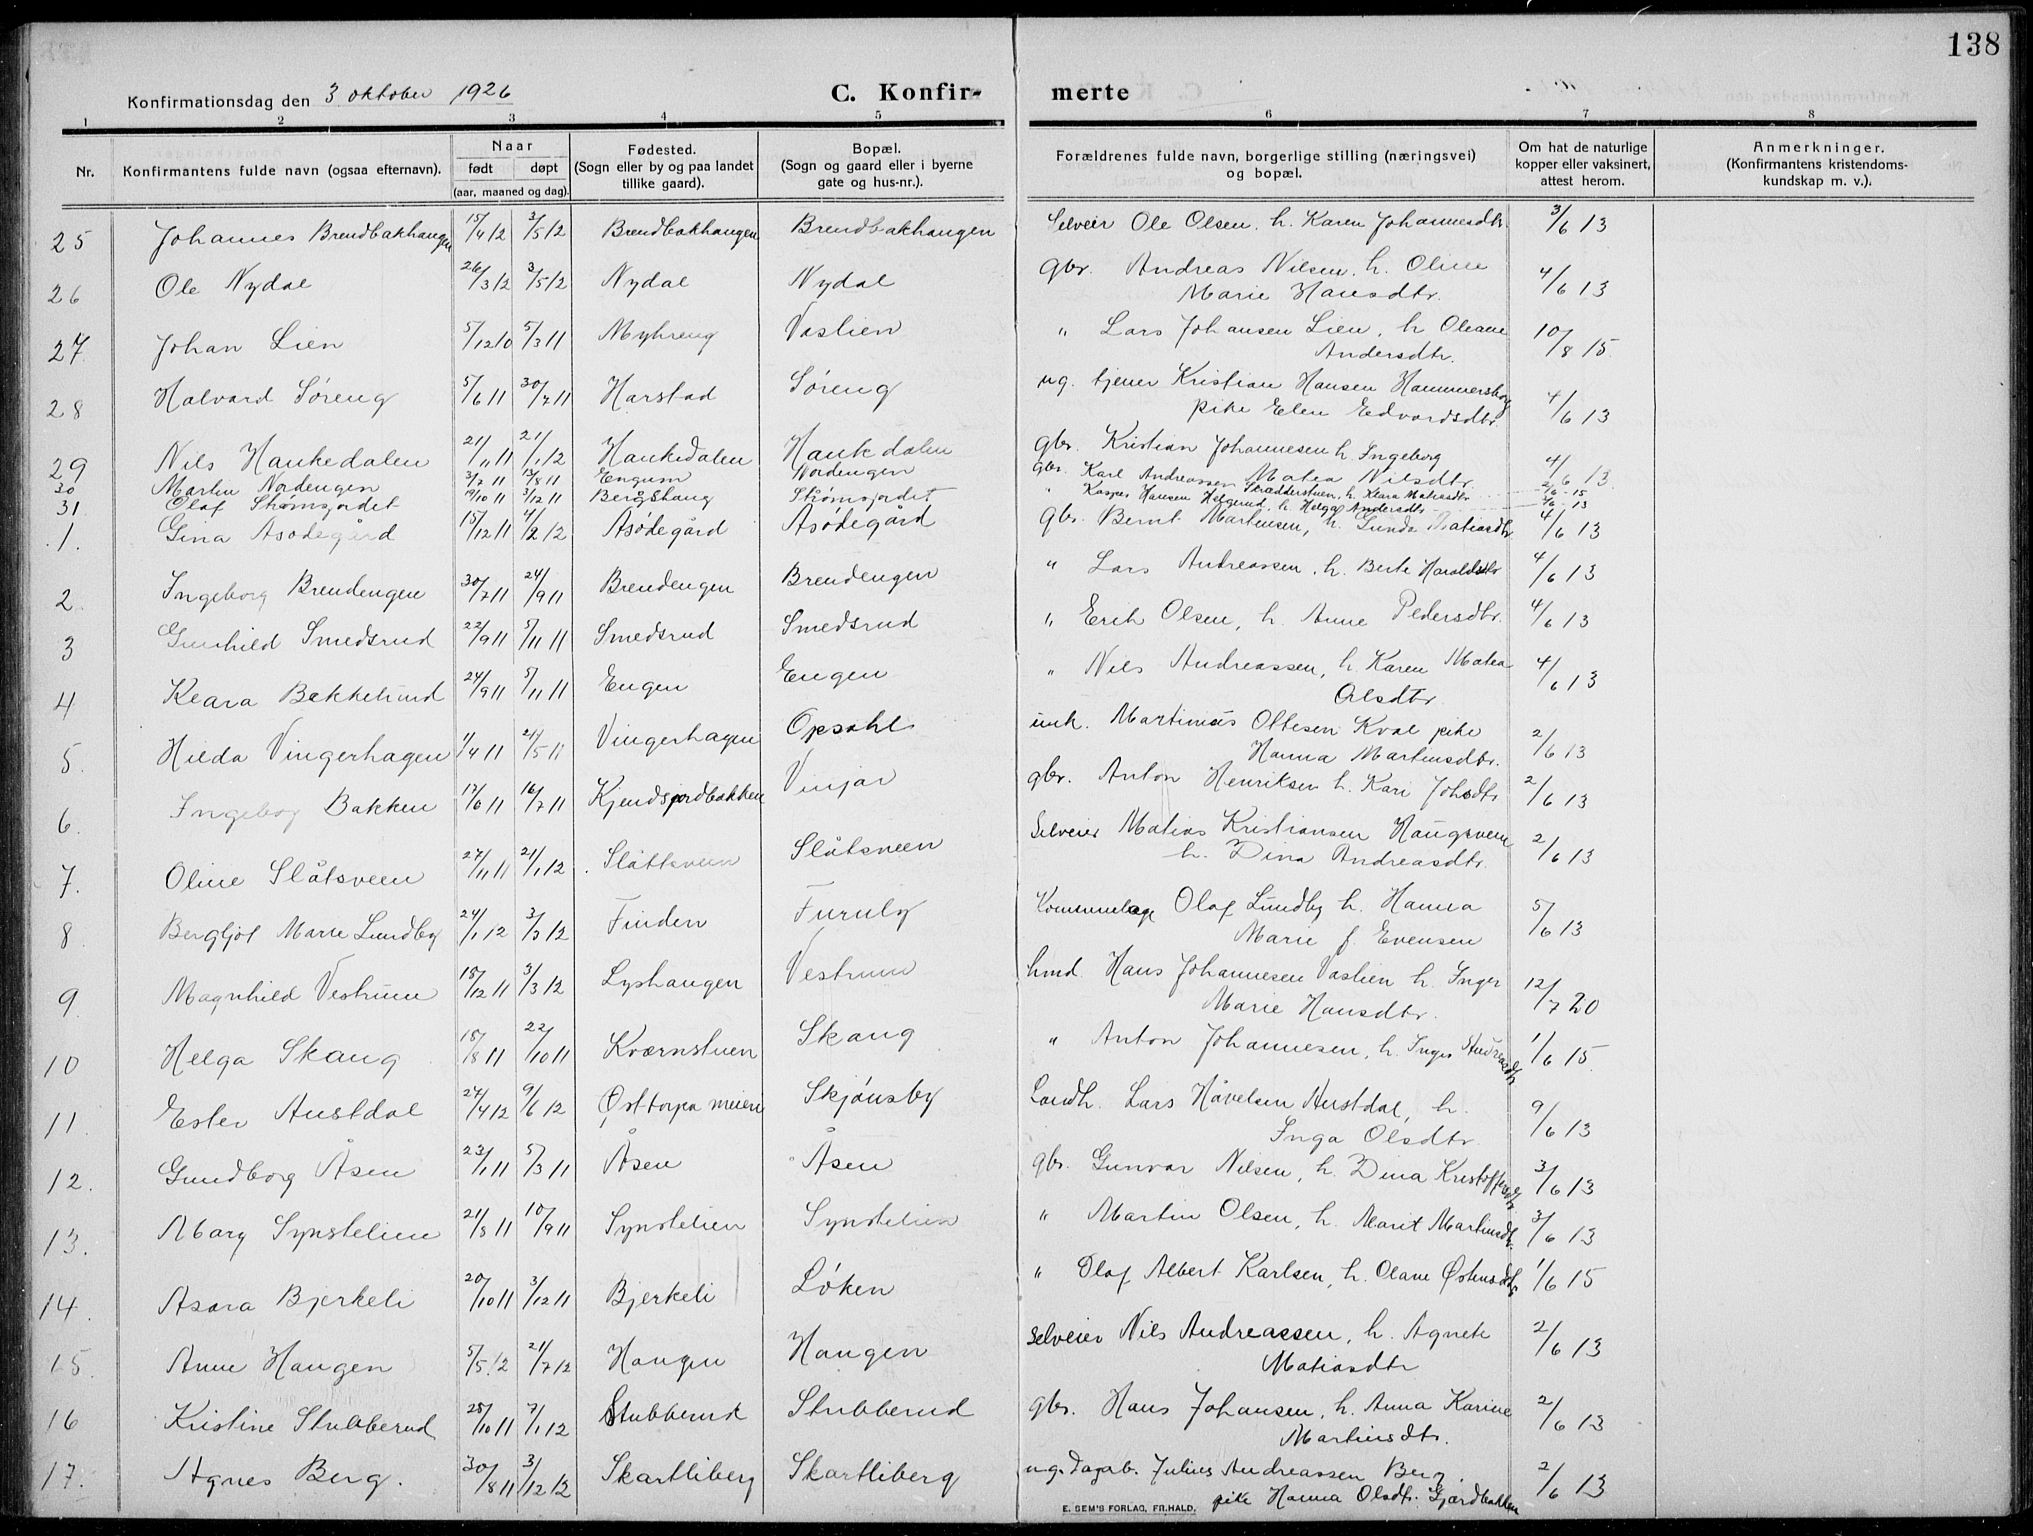 138
Konfirmationsdag den 3 oktober 1926 C. Konfir- merte
1 2 3 4 5 6 7 8
Nr. Konfirmantens fulde navn (ogsaa efternavn). Naar født døpt (aar, maaned og dag). Fødested. (Sogn eller by og paa landet tillike gaard). Bopæl. (Sogn og gaard eller i byerne gate og hus-nr.). Forældrenes fulde navn, borgerlige stilling (næringsvei) og bopæl. Om hat de naturlige kopper eller vaksinert, attest herom. Anmerkninger. (Konfirmantens kristendoms-kundskap m. v.).
25 Johannes Brendbakhaugen 15/4 12 3/5 12 Brendbakhaugen Brendbakhaugen Selveier Ole Olsen. h. Karen Johannesdtr. 3/6 13
26 Ole Nydal 26/3 12 3/5 12 Nydal Nydal gbr. Andreas Nilsen. h. Oline 4/6 13
Marie Hansdtr.
27 Johan Lien 5/12 10 5/3 11 Myhreng Vastien " Lars Johansen Lien, h Oleane 10/8 15.
Andersdtr.
28 Halvard Søreng 5/6 11 30/7 11 Harstad Søreng ug. tjener Kristian Hansen Hammersborg 4/6 13
pike Elen Edvardsdtr.
29 Nils Haukedalen 21/11 11 21/1 12 Haukedalen Haukedalen gbr. Kristian Johannesen h. Ingeborg 4/6 13.
Matea Nilsdtr.
30 Martin Nordengen 3/7 11 13/8 11 Engum Nordengen gbr. Karl Andreassen Skrædderstuen. h. Klara Matiasdtr. 2/6 15
31. Olaf Strømsjordet 19/10 11 3/12 11 Bergshaug Strømsjordet " Kasper Hansen Helgerud, h. Helga Andersdtr. 4/6 13
1. Gina Asødegård 15/12 11 4/2 12 Asødegård Asødegård gbr. Bernt Martinsen, h. Gunda Matiasdtr 4/6 13
2. Ingeborg Brendengen 30/7 11 24/9 11 Brendengen Brendengen " Lars Andreassen. h. Berte Haraldsdtr 4/6 13
3 Gunhild Smedsrud 22/9 11 5/11 11 Smedsrud Smedsrud " Erik Olsen, h. Anne Pedersdtr. 4/6 13
4 Klara Bakkelund 24/9 11 5/11 11 Engen Engen " Nils Andreassen, h. Karen Matea 4/6 13
Olsdtr.
5. Hilda Vingerhagen 1/4 11 24/5 11 Vingerhagen Opsahl unk. Martinius Ottesen Kval pike 2/6 13
Hanna Martinsdtr.
6. Ingeborg Bakken 17/6 11 16/7 11 Kjendsjordbakken Vinjar gbr. Anton Henriksen h. Kari Johsdtr 2/6 13
7. Oline Slåtsveen 27/11 11 21/1 12 Slåttsveen Slåtsveen Selveier Matias Kristiansen Haugsveen 2/6 13
h. Dina Andreasdtr.
8. Bergljot Marie Lundby 24/1 12 3/3 12 Finden Furuly Olaf Lundby h. Hanna 5/6 13
Marie f. Evensen
9. Magnhild Vestrum 15/12 11 3/3 12 Lyshaugen Vestrum hmd. Hans Johannesen Vastien h. Inger 12/7 20
Marie Hansdtr.
10 Helga Skaug 15/8 11 22/10 11 Kværnstuen Skaug " Anton Johannesen, h. Inger Andreasdtr 1/6 15.
11. Ester Austdal 24/4 12 9/6 12 Østtorpa meieri Skjønsby Landh. Lars Håvelsen Austdal, h. 9/6 13
Inga Olsdtr.
12. Gundborg Åsen 23/1 11 5/3 11 Åsen Åsen gbr. Gunvar Nilsen, h. Dina Kristoffersdtr 3/6 13
13. Mary Synstelien 21/8 11 10/9 11 Synstelien Synstelien " Martin Olsen, h. Marit Martinsdtr. 3/6 13
14. Asora Bjerkeli 20/10 11 3/12 11 Bjerkeli Løken " Olaf Albert Karlsen, h. Olane Østensdtr 1/6 15
15. Anne Haugen 5/5 12 21/7 12 Haugen Haugen Selveier Nils Andreassen, h. Agnete 2/6 13
Matiasdtr
16 Kristine Stubberud 25/10 11 7/1 12 Stubberud Stubberud gbr. Hans Johansen, h. Anna Karine 2/6 13
Martinsdtr.
17. Agnes Berg. 30/8 11 3/12 12 Skartliberg Skartliberg ug. dagarb. Julius Andreassen Berg. 2/6 13
pike Hanna Olsdtr. Gjærdbakken
E. SEM'S FORLAG, FR.HALD.